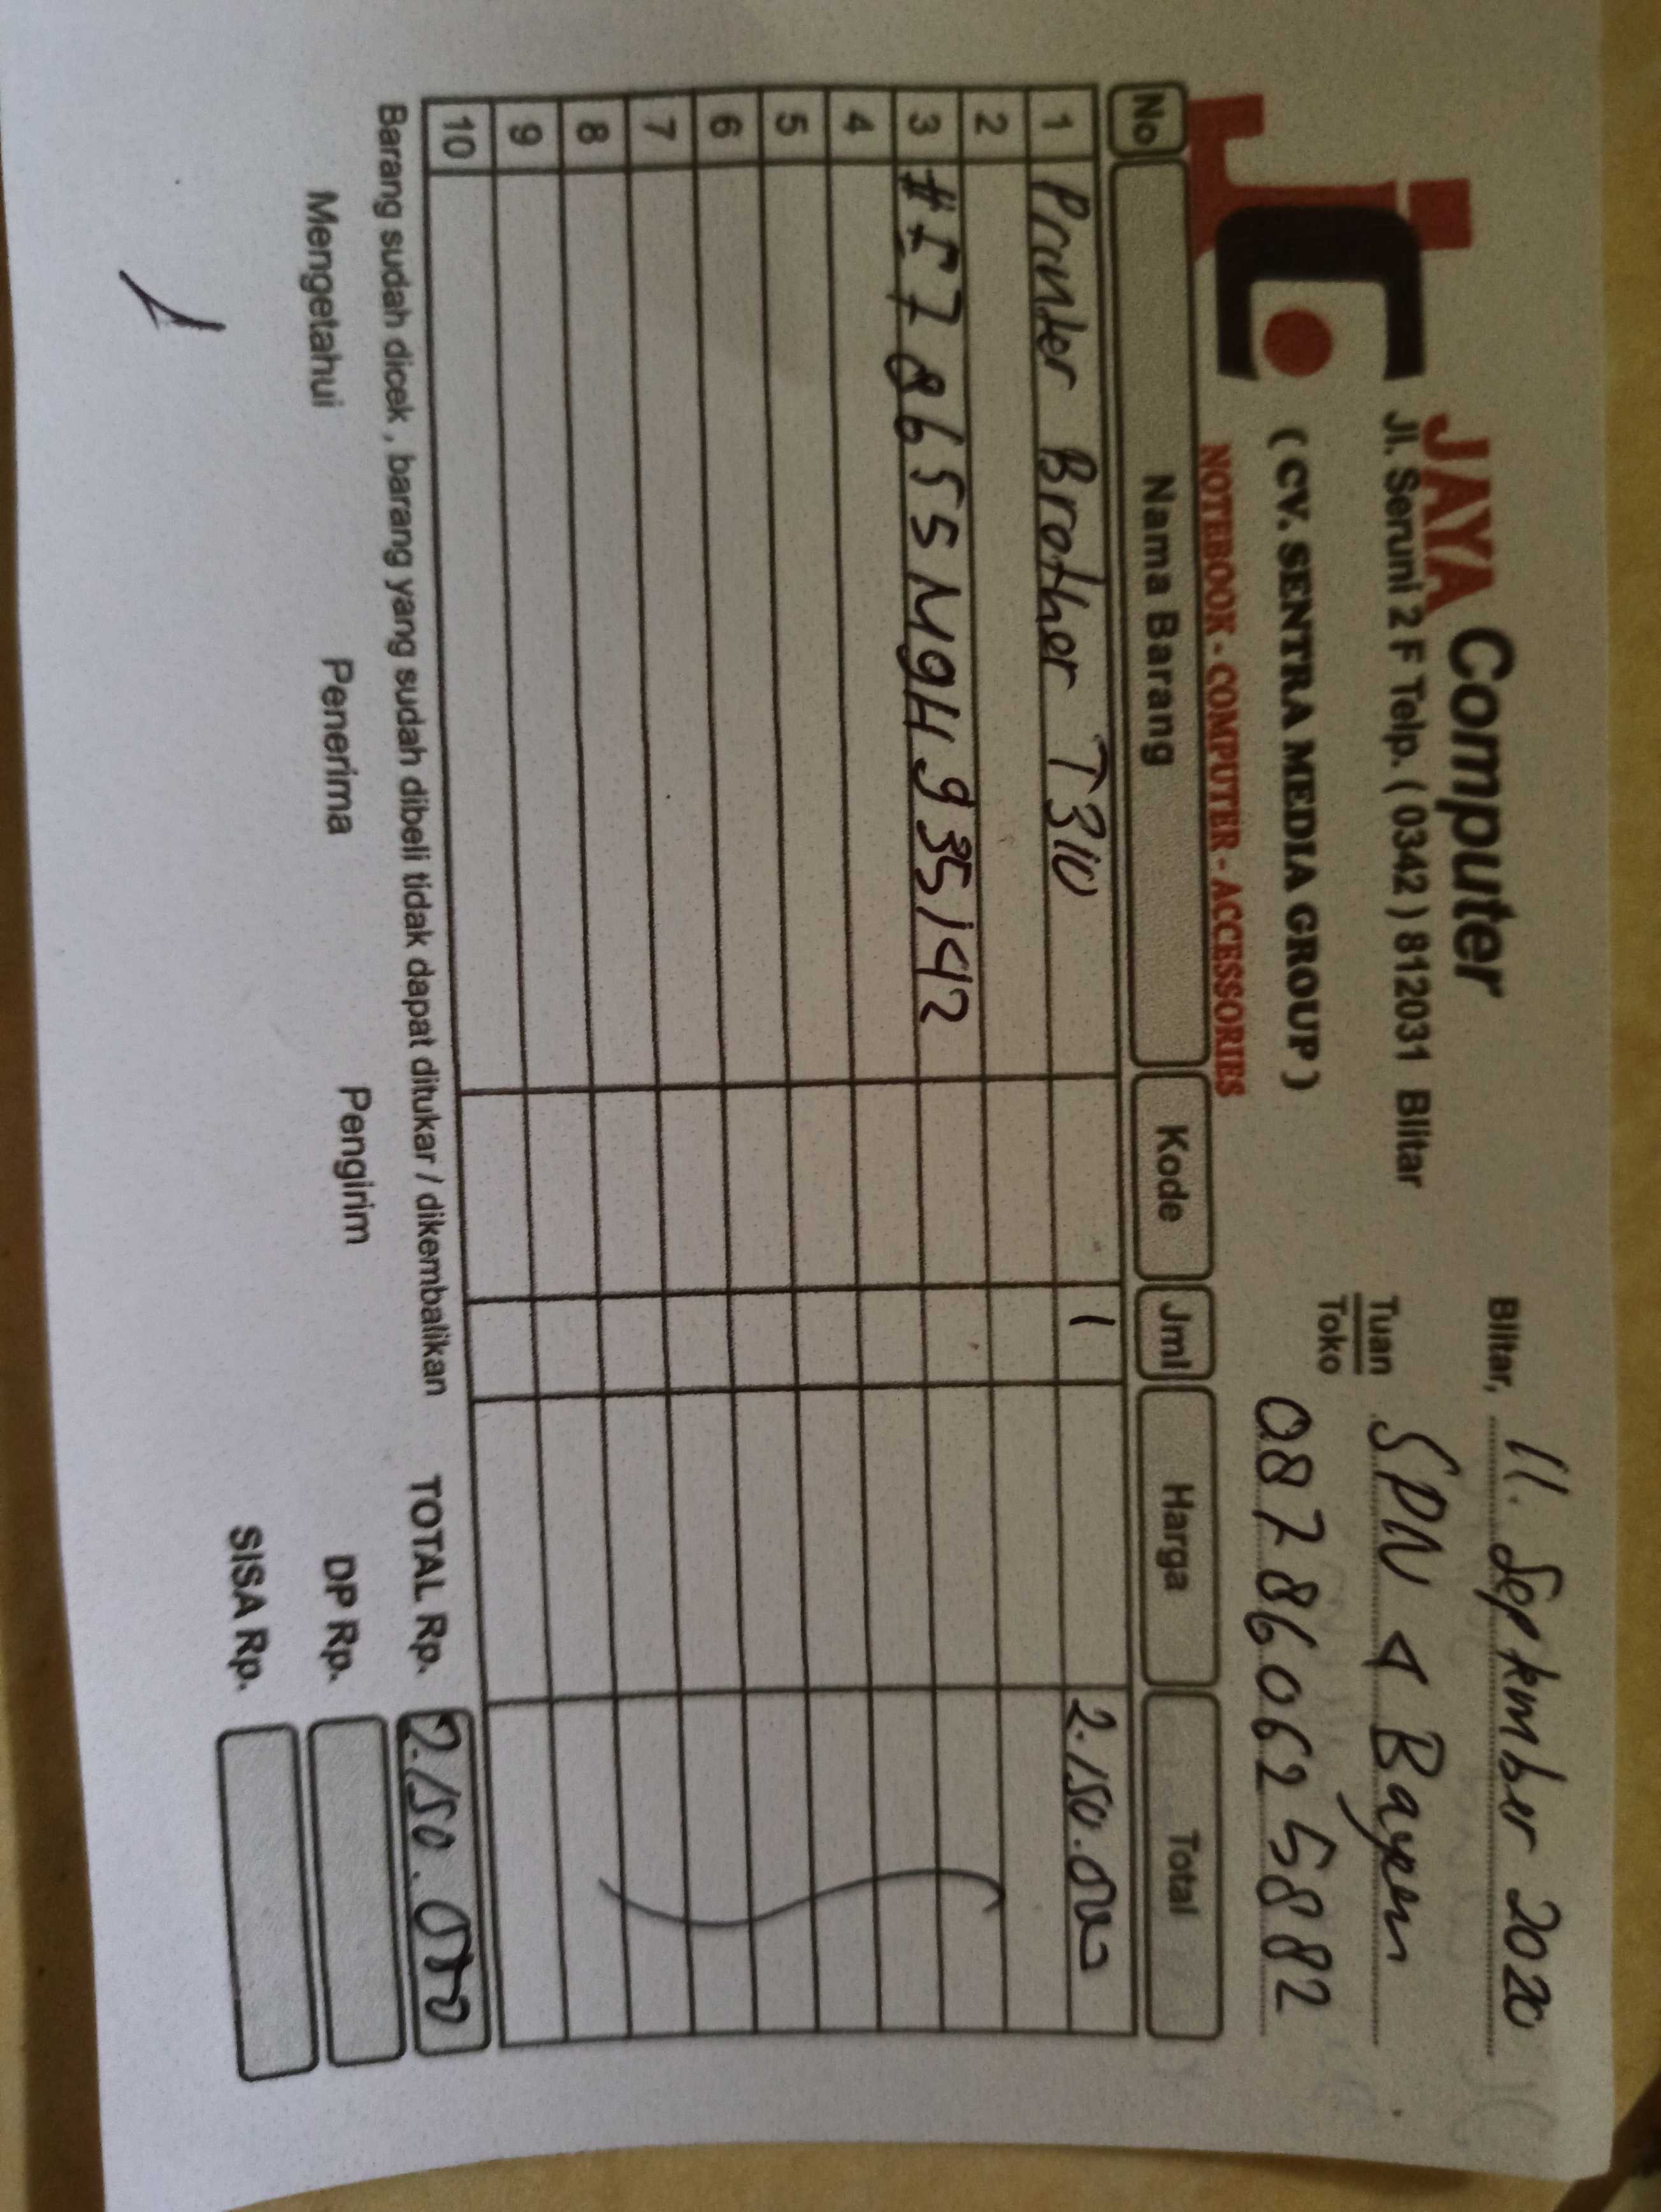 JC
JAYA Computer
Jl. Seruni 2 F Telp. ( 0342 ) 812031 Blitar
( CV. SENTRA MEDIA GROUP )
NOTEBOOK - COMPUTER - ACCESSORIES
Blitar, 11. September 2020
Tuan SDN 4 Bayem
Toko
087860625882
No Nama Barang Kode Jml Harga Total
1 Printer Brother T310 1 2.150.000
2
3 #E78655M9H935142
4
5
6
7
8
9
10
Barang sudah dicek , barang yang sudah dibeli tidak dapat ditukar / dikembalikan
TOTAL Rp. 2.150.000
Mengetahui Penerima Pengirim
DP Rp.
SISA Rp.